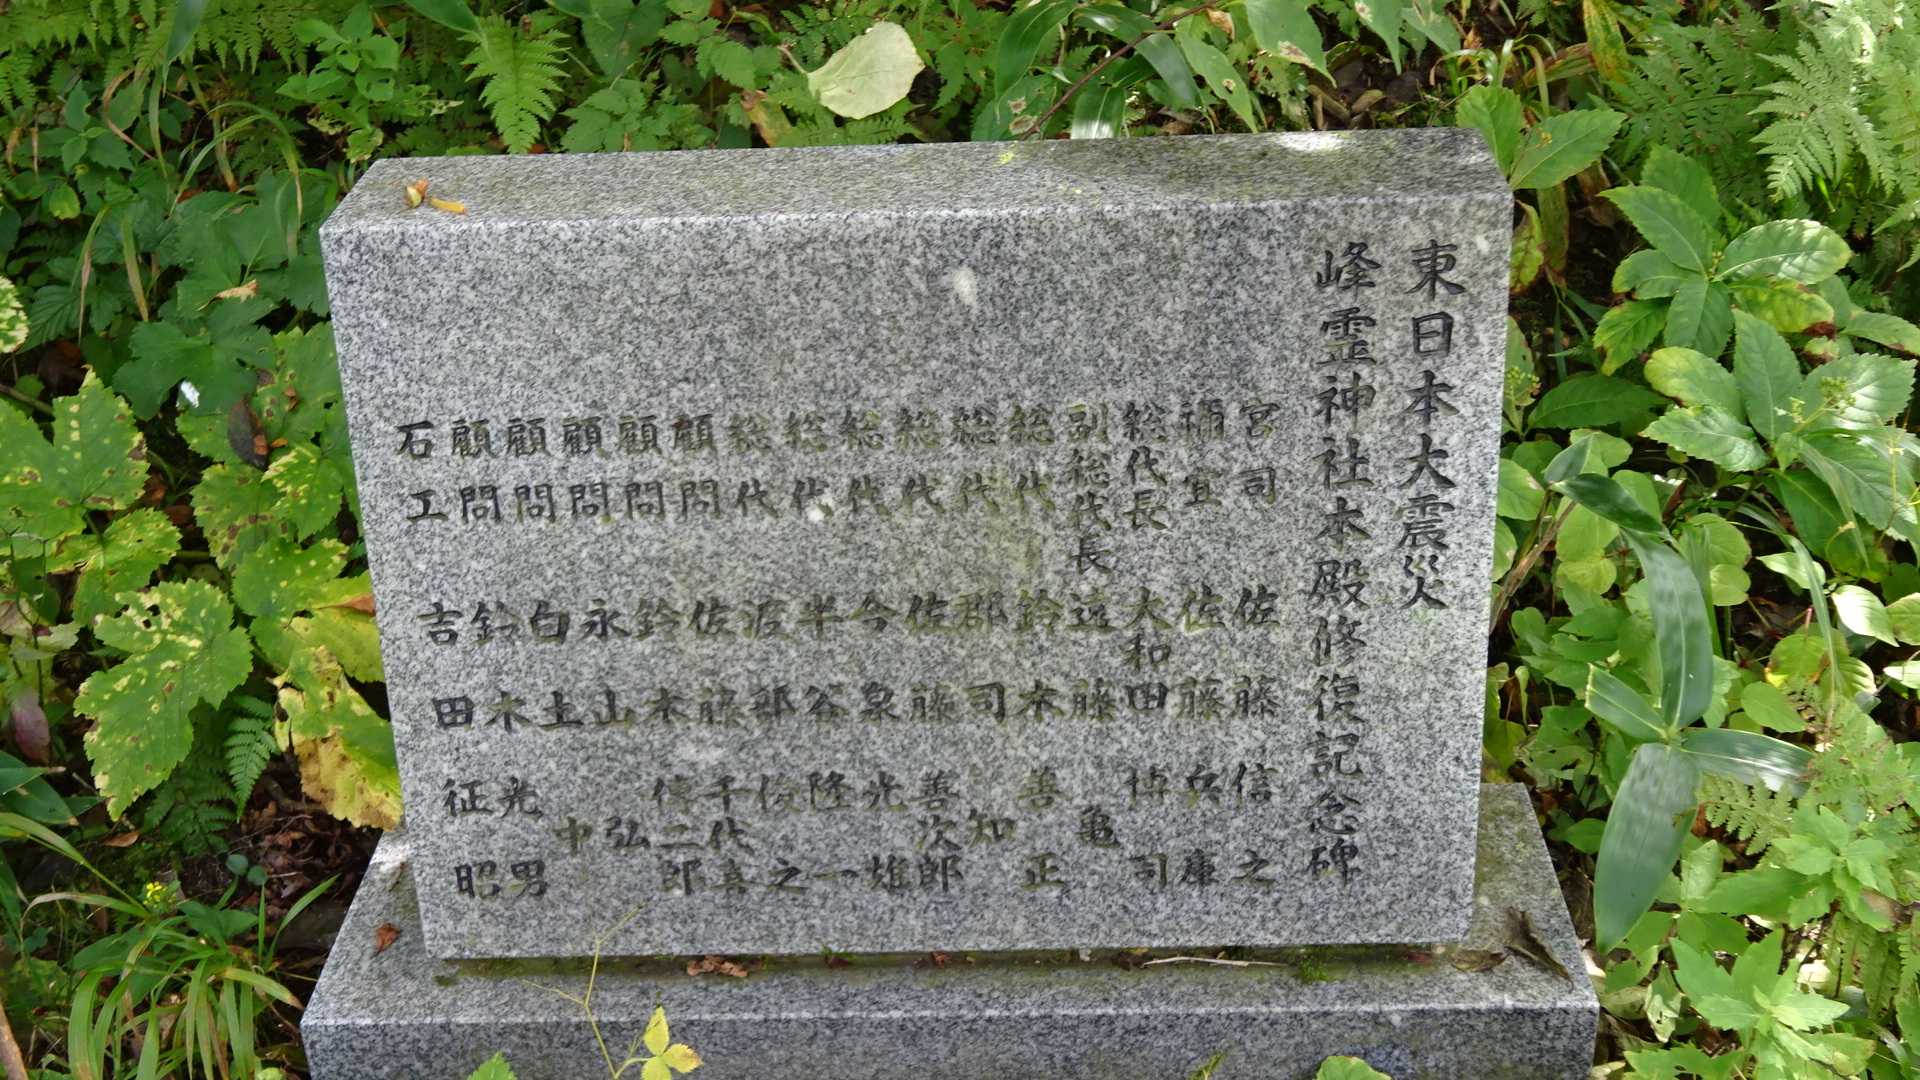 東日本大震災
峰霊神社本殿修復記念碑
宮司 佐藤信之
禰宜 佐藤兵庫
総代長 大和田博司
副総代長 遠藤亀
総代 鈴木善正
総代 郡司知
総代 佐藤善次郎
総代 今泉光雄
総代 半谷隆一
総代 渡部俊之
顧問 佐藤千代喜
顧問 鈴木傳二郎
顧問 永山弘
顧問 白土中
顧問 鈴木光男
石工 吉田征昭